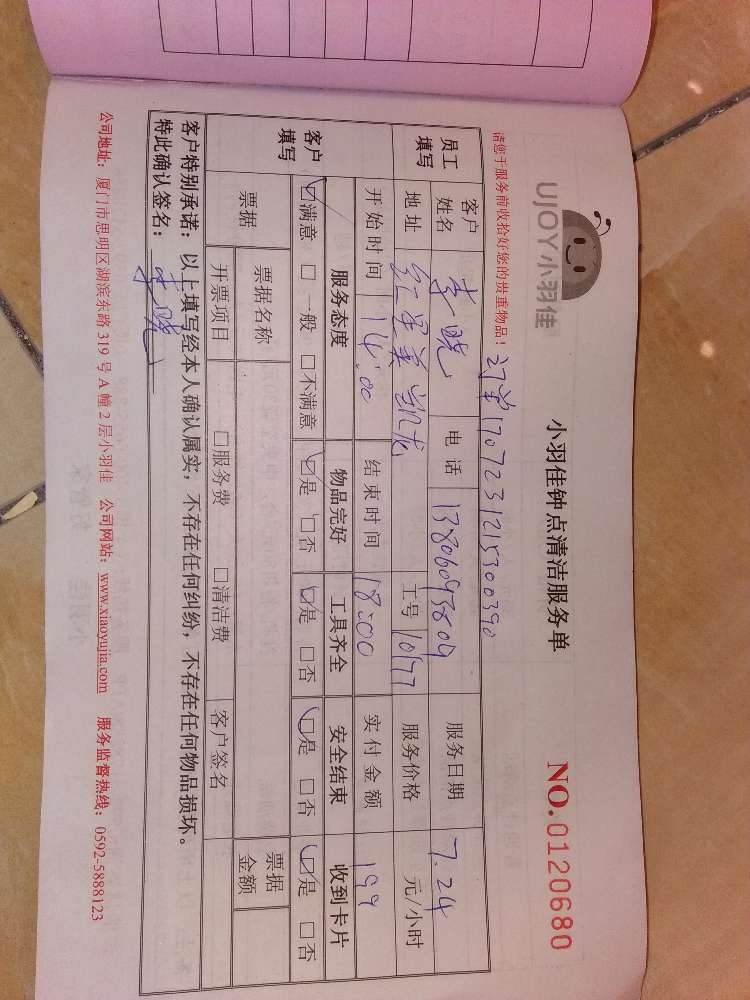 UJOY小羽佳
小羽佳钟点清洁服务单
NO.0120680
请您于服务前收拾好您的贵重物品！
订单1707231215300390
员工填写 客户姓名 李晓 电话 13806093809 服务日期 7.24
地址 红星美凯龙 工号 10177 服务价格 元/小时
开始时间 14:00 结束时间 18:00 实付金额 199
客户填写 服务态度 物品完好 工具齐全 安全结束 收到卡片
☑满意 □一般 □不满意 ☑是 □否 ☑是 □否 ☑是 □否 ☑是 □否
票据 票据名称 票据金额
开票项目 □服务费 □清洁费 客户签名
客户特别承诺：以上填写经本人确认属实，不存在任何纠纷，不存在任何物品损坏。
特此确认签名：李晓
公司地址：厦门市思明区湖滨东路319号A幢2层小羽佳 公司网站：www.xiaoyujia.com 服务监督热线：0592-5888123